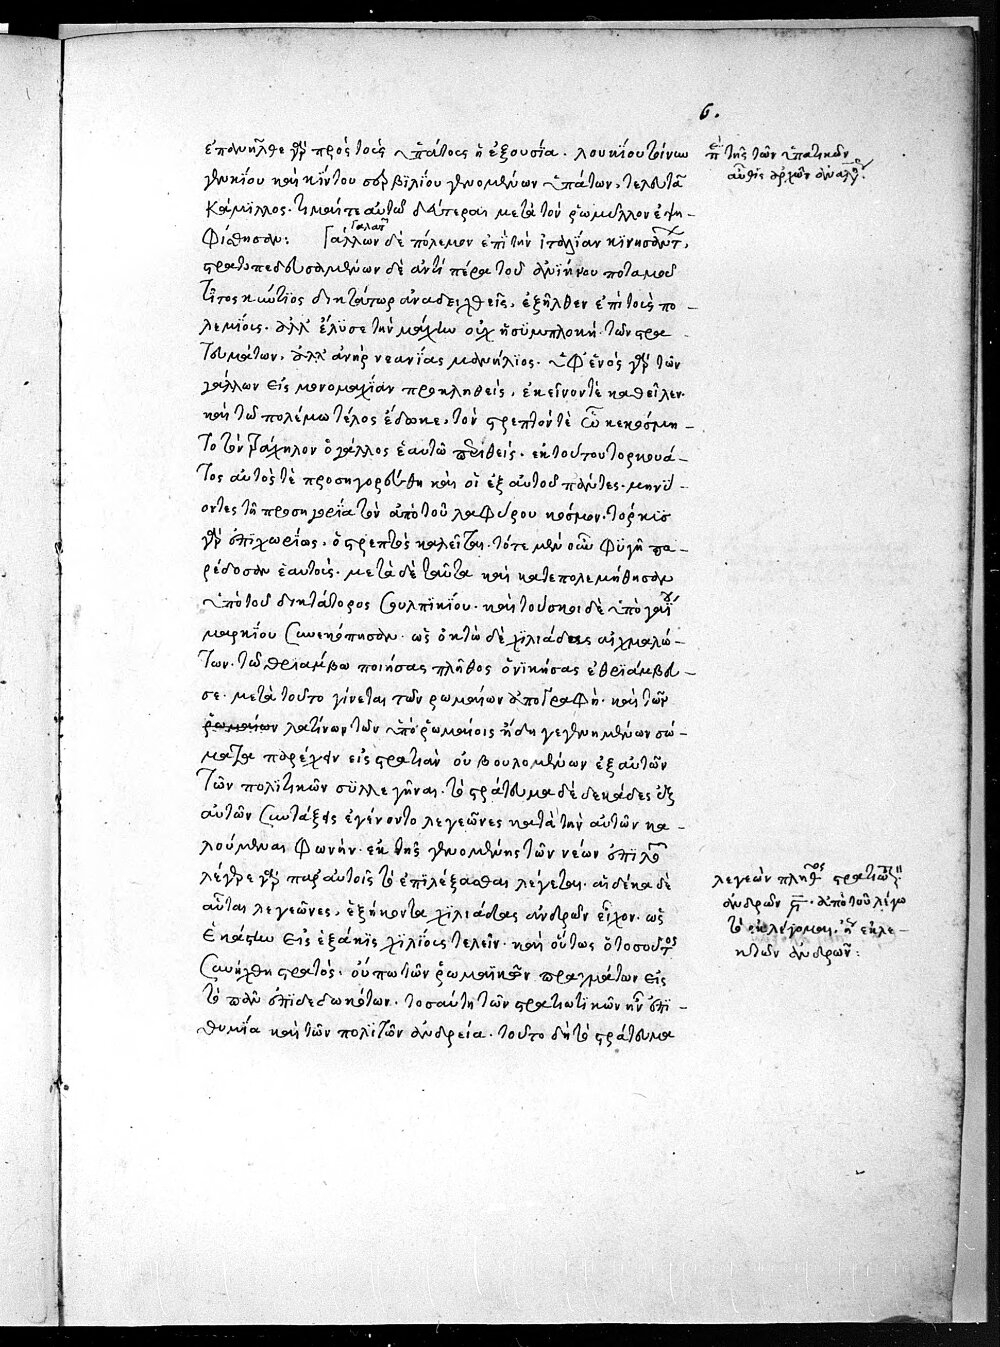 6.
ἐπανῆλθε γὰρ πρὸς τοὺς ὑπάτους ἡ ἐξουσία. λουκίου τοίνυν
γενυκίου καὶ κίντου σερβιλίου γενομένων ὑπάτων, τελευτᾶ
κάμιλλος. τιμαί τε αὐτῶ δεύτεραι μετὰ τὸν ῥωμύλλον ἐψη-
φίσθησαν: Γάλλων δὲ πόλεμον ἐπὶ τὴν ἰταλίαν κινησάντ,
Γαλατ
στρατοπεδευσαμένων δὲ ἀντιπέρα τοῦ ἀνιήνου ποταμοῦ
τίτος κυίντιος δικτάτωρ ἀναδειχθεὶς, ἐξῆλθεν ἐπὶ τοὺς πο-
λεμίους. ἀλλ' ἔλυσε τὴν μάχην οὐχ ἡ συμπλοκὴ τῶν στρα-
τευμάτων, ἀλλ' ἀνὴρ νεανίας μανήλιος. ὑφ' ἑνὸς γὰρ τῶν
γάλλων εἰς μονομαχίαν προκληθεὶς, ἐκεῖνόν τε καθεῖλεν.
καὶ τῶ πολέμω τέλος ἔδωκε, τὸν στρεπτόν τε ὧ κεκόσμη-
το τὸν τράχηλον ὁ γάλλος ἑαυτῶ περιθεὶς. ἐκ τούτου τορκουά-
τος αὐτός τε προσηγορεύθη καὶ οἱ ἐξ αὐτοῦ πάντες. μηνύ-
οντες τῆ προσηγορία τὸν ἀπὸ τοῦ λαφύρου κόσμον. τόρκις
γὰρ ἐπιχωρίως, ὁ στρεπτὸς καλεῖται. τότε μὲν οὖν φυγῆ πα-
ρέδοσαν ἑαυτούς. μετὰ δὲ ταῦτα καὶ κατεπολεμήθησαν
ὑπὸ τοῦ δικτάτορος Σουλπικίου. καὶ τοῦσκοι δὲ ὑπὸ γαΐου
μαρκίου Συνεκόπησαν. ὡς ὀκτὼ δὲ χιλιάδας αἰχμαλώ-
των. τῶ θριάμβω ποιήσας πλῆθος ὁ νικήσας ἐθριάμβευ-
σε. μετὰ τοῦτο γίνεται τῶν ῥωμαίων ἀπογραφὴ. καὶ τῶν
ῥωμαίων λατίνων τῶν ὑπὸ ῥωμαίοις ἤδη γεγενημένων σώ-
ματα παρέχειν εἰς στρατιὰν οὐ βουλομένων ἐξ αὐτῶν
τῶν πολιτικῶν συλλεγῆναι. τὸ στράτευμα δὲ δεκάδες ἐξ
αὐτῶν Συντάξεις ἐγένοντο λεγεῶνες κατὰ τὴν αὐτῶν κα-
λούμεναι φωνὴν. ἐκ τῆς γενομένης τῶν νέων ἐπιλογ
λέγερε γὰρ παρ' αὐτοῖς τὸ ἐπιλέξασθαι λέγεται. αἱ δέκα δὲ
αὗται λεγεῶνες, ἑξήκοντα χιλιάδας ἀνδρῶν εἶχον. ὡς
ἑκάστην εἰς ἑξάκις χιλίους τελεῖν. καὶ οὕτως ὁ τοσοῦτος
Συνήχθη στρατός. οὔπω τῶν ῥωμαϊκῶν πραγμάτων εἰς
τὸ πᾶν ἐπιδεδωκότων. τοσαύτη τῶν στρατιωτικῶν ἦν ἐπι-
θυμία καὶ τῶν πολιτῶν ἀνδρεία. τοῦτο δὴ τὸ στράτευμα
π τῆς τῶν ὑπατικῶν
αὖθις ἀρχῶν
λεγεὼν πλῆθος στρατιωτ
ἀνδρῶν ͵ϛ. ἀπὸ τοῦ λέγω
τὸ ἐκλέγομαι, ἢ ἐκλε-
κτῶν ἀνδρῶν: